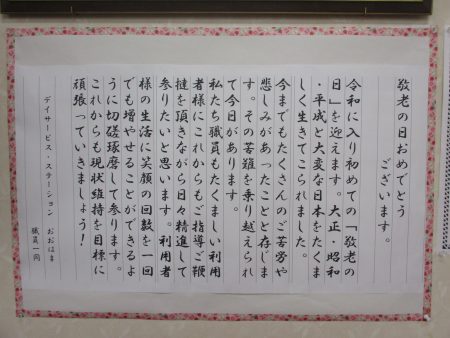 敬老の日おめでとう
ございます。
令和に入り初めての「敬老の
日」を迎えます。大正・昭和
・平成と大変な日本をたくま
しく生きてこられました。
今までもたくさんのご苦労や
悲しみがあったことと存じま
す。その苦難を乗り越えられ
て今日があります。
私たち職員もたくましい利用
者様にこれからもご指導ご鞭
撻を頂きながら日々精進して
参りたいと思います。利用者
様の生活に笑顔の回数を一回
でも増やせることができるよ
うに切磋琢磨して参ります。
これからも現状維持を目標に
頑張っていきましょう！
デイサービス・ステーション おおはま
職員一同